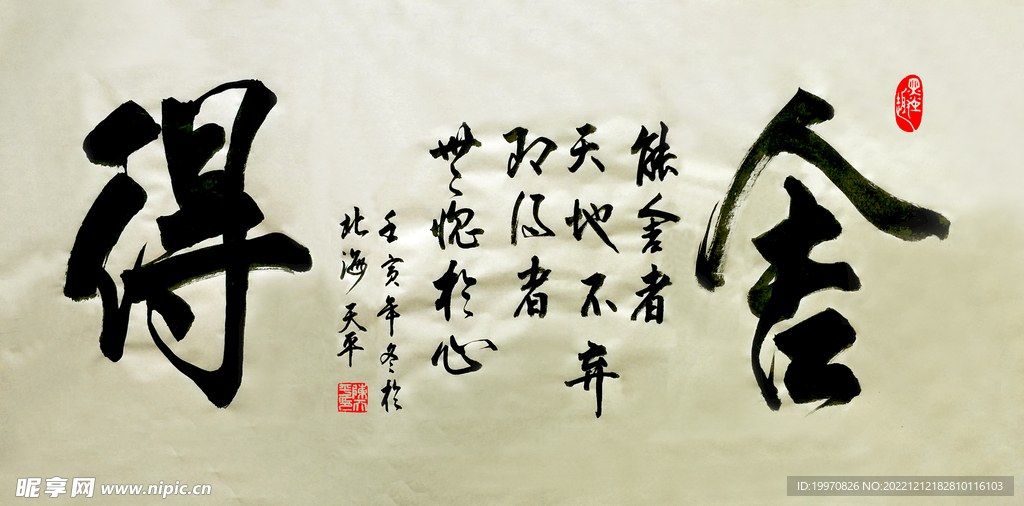 舍
能舍者
天地不弃
即得者
無愧於心
得
壬寅年冬於
北海天平
昵享网 www.nipic.cn
ID:19970826 NO:20221212182810116103